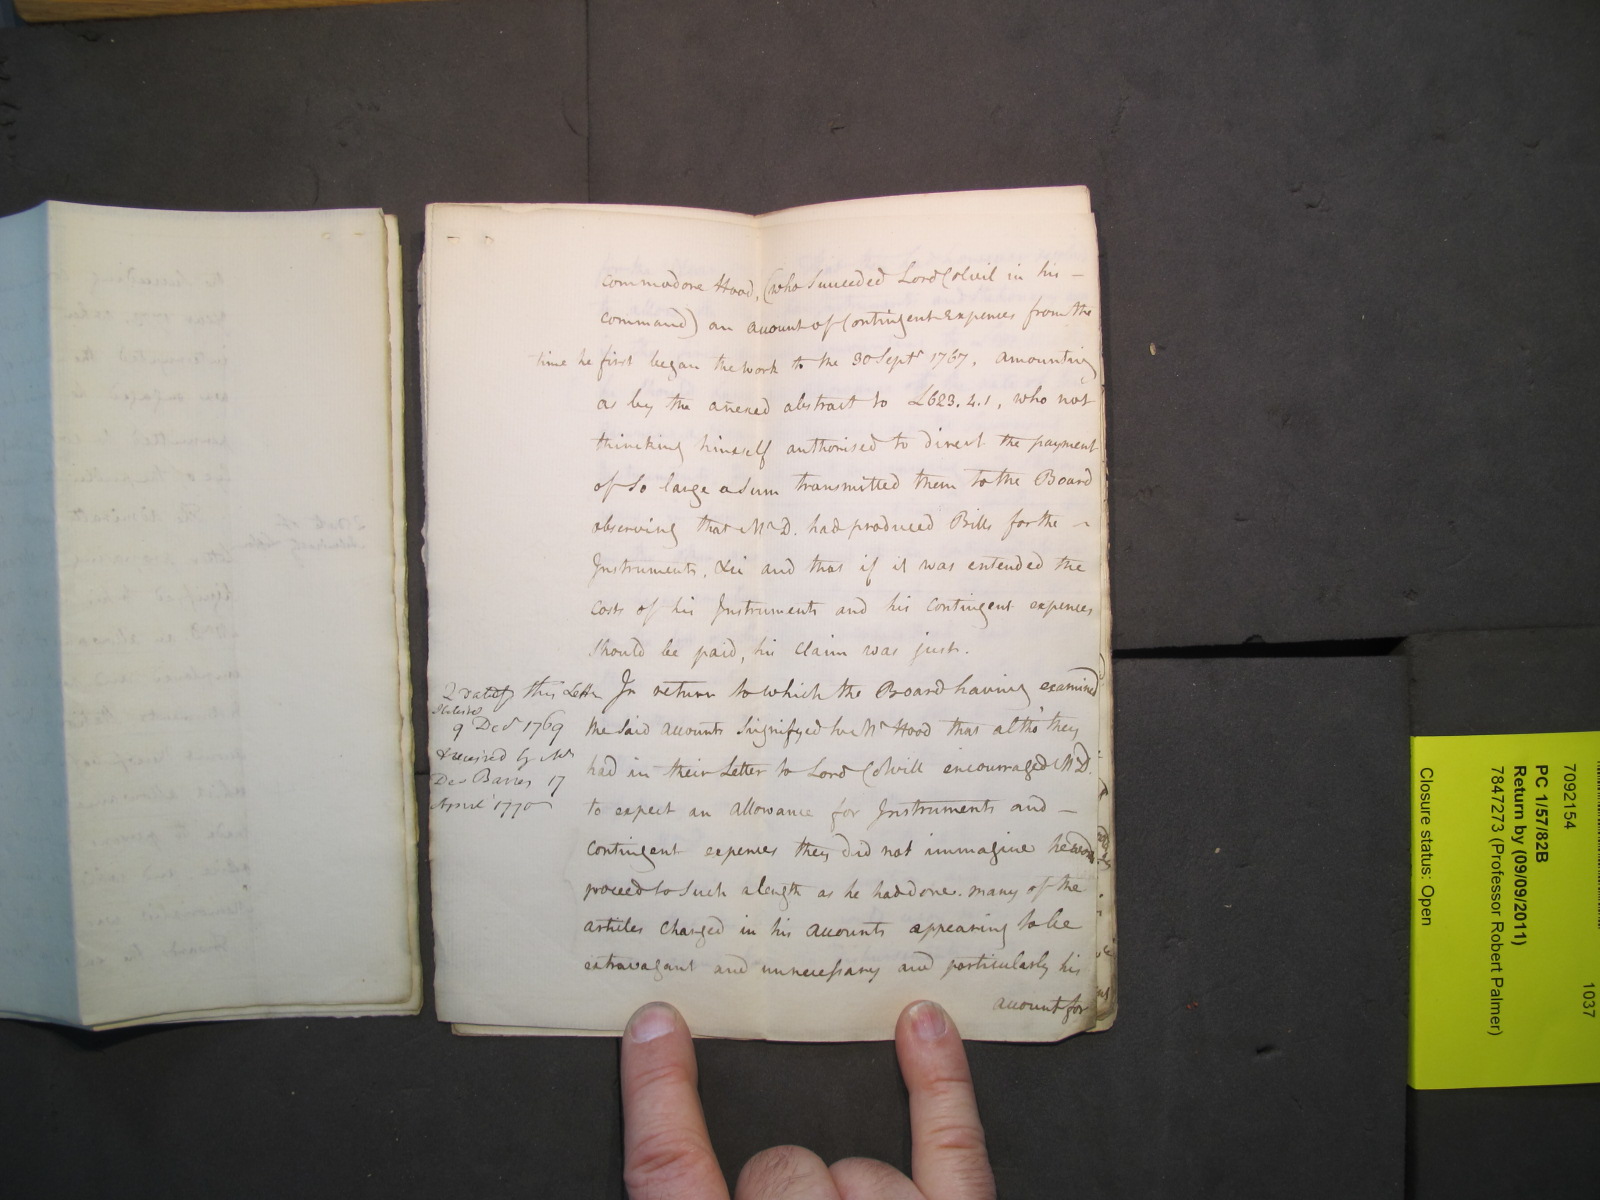 Commodore Hood, (who Succeeded Lord Colvil in his –
command) an account of Contingent Expences from the
time he first began the work to the 30 Septr 1767, amounting
as by the anexed abstract to £623.4.1, who not
thinking himself authorised to direct the payment
of So large a Sum transmitted them to the Board
observing that Mr D. had produced Bills for the –
Instruments, &c and that if it was entended the
costs of his Instruments and his Contingent expences
Should be paid, his Claim was just.
In return to which the Board having examined
the Said accounts Signifyed to Mr Hood that altho' they
had in their Letter to Lord Colvill encouraged Mr D.
to expect an allowance for Instruments and –
Contingent expences they did not immagine he would
proceed to Such a length as he had done. many of the
articles Charged in his accounts appearing to be
extravagant and unnecessary and particularly his
account for
this Letter
9 Decr 1769
& received by Mr
Des Barres 17
April 1770
7092154
1037
PC 1/57/82B
Return by (09/09/2011)
7847273 (Professor Robert Palmer)
Closure status: Open